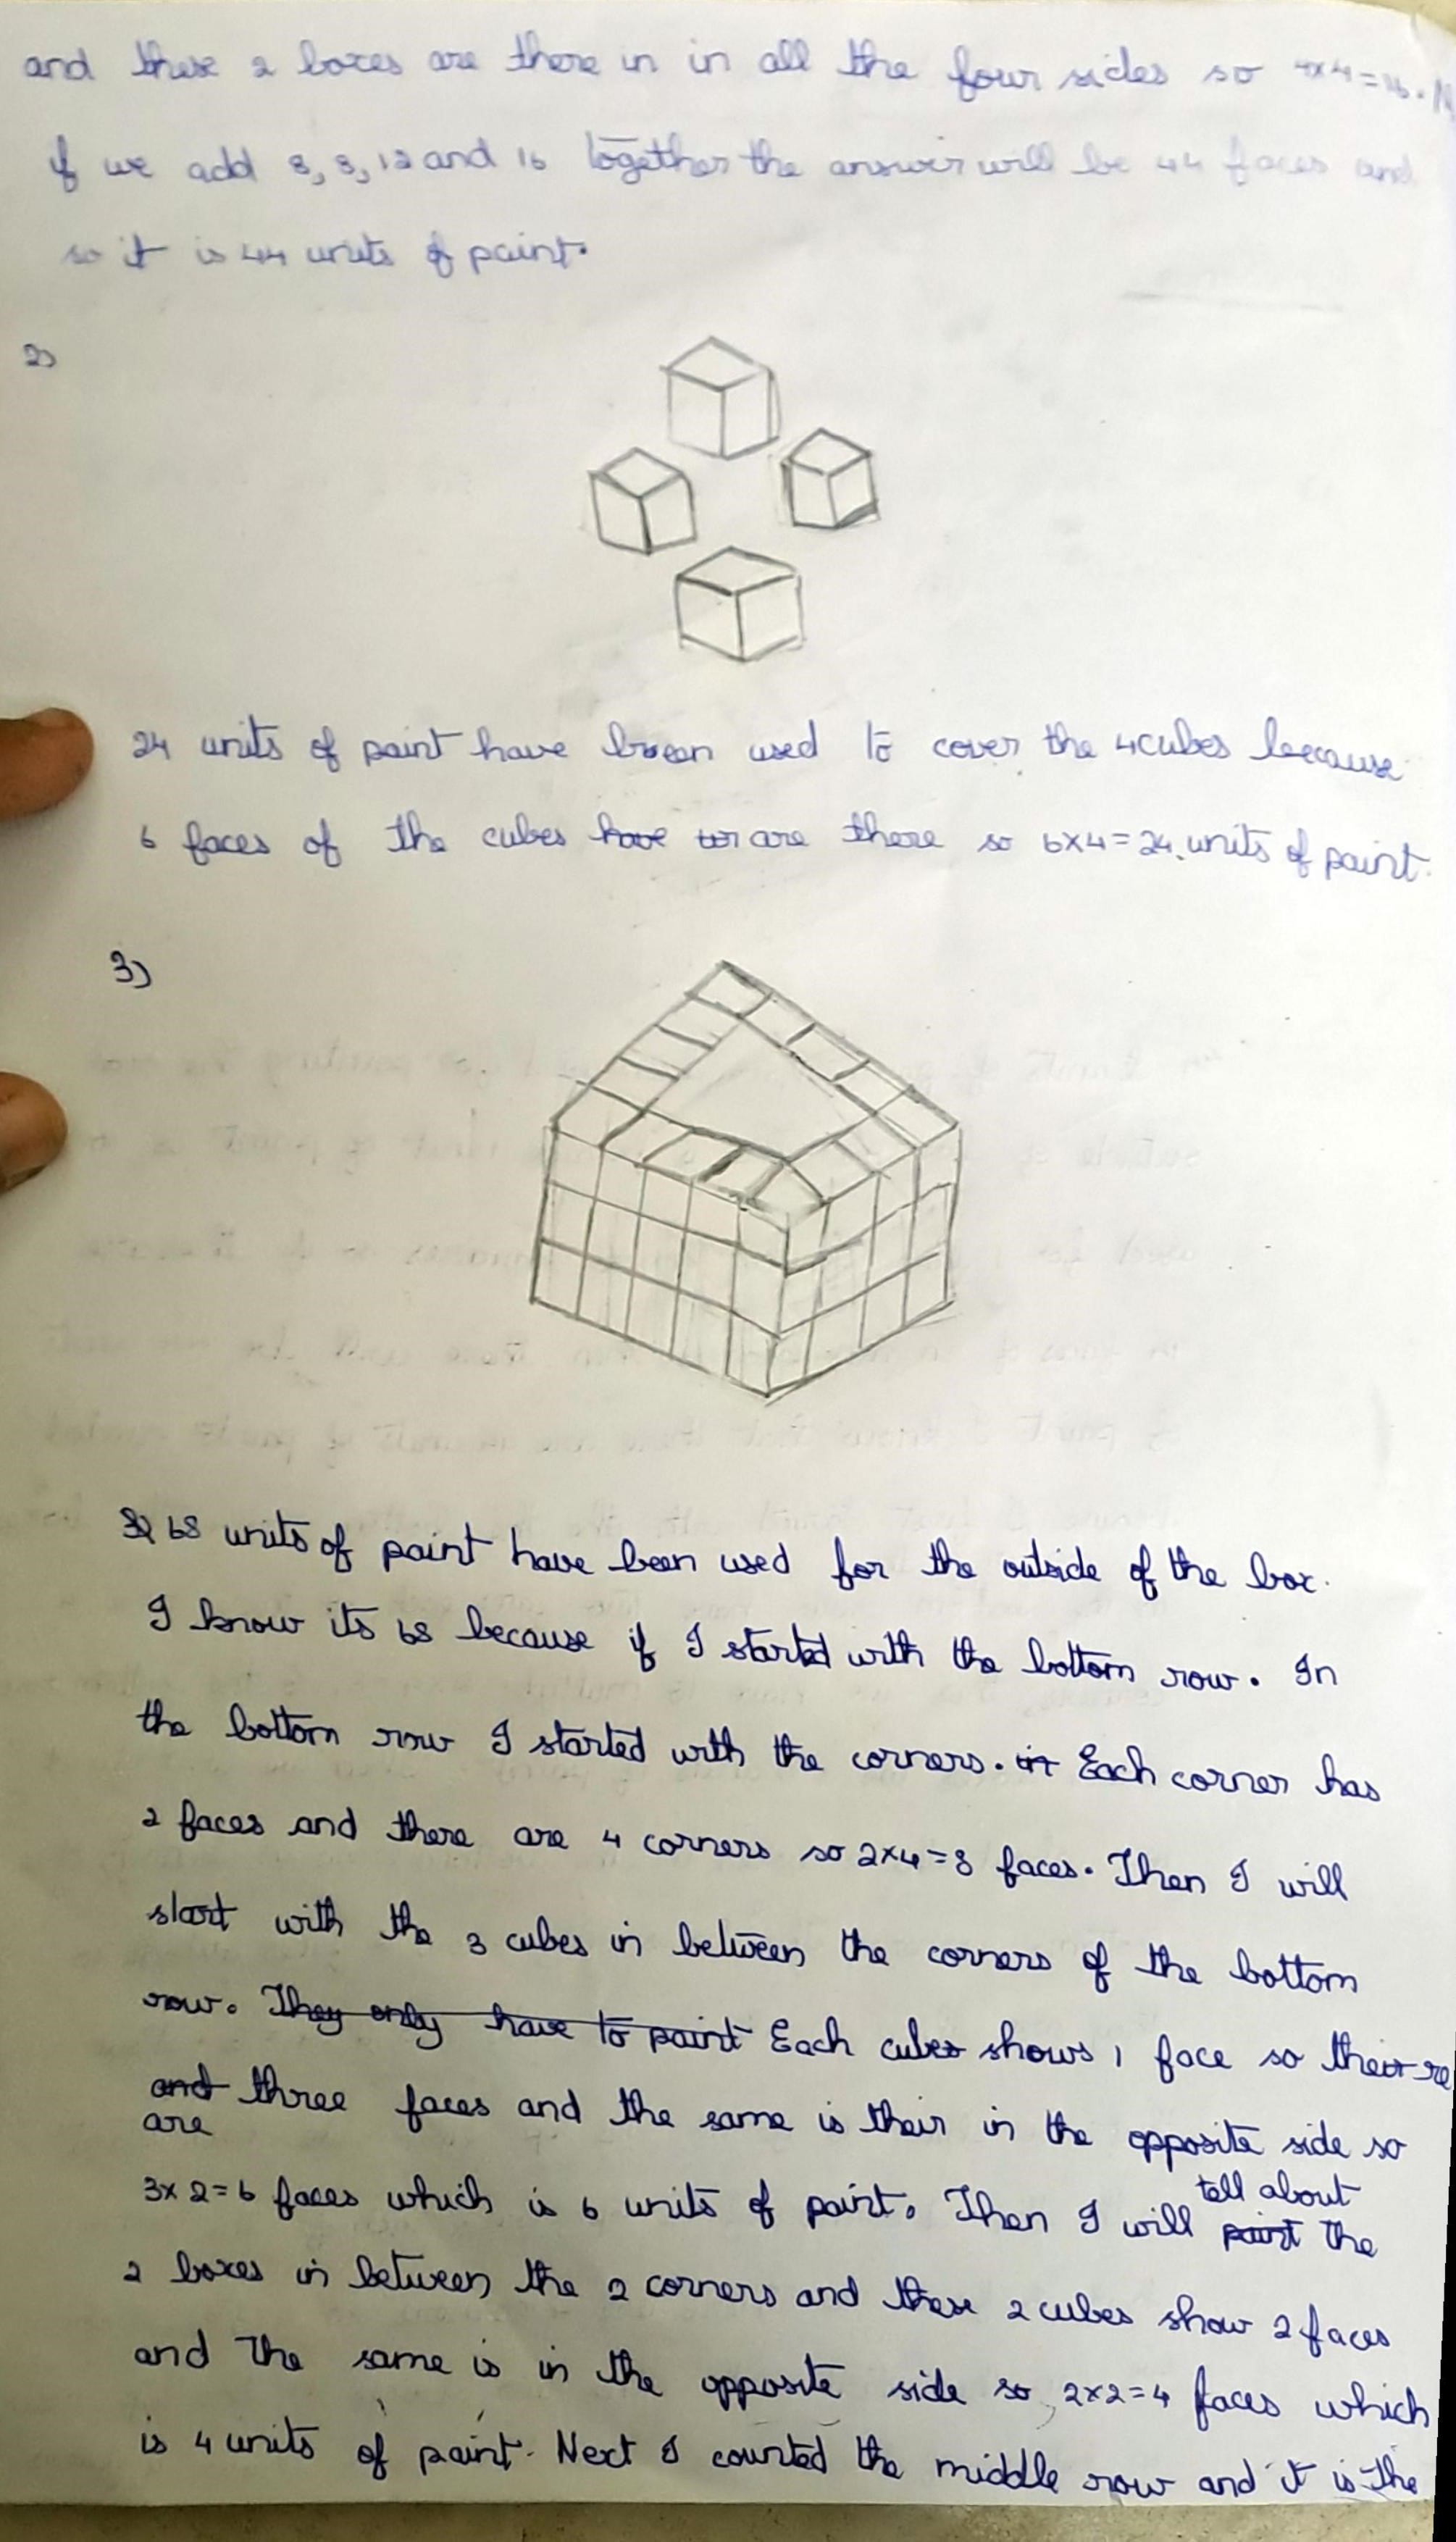 and these 2 boxes are there in in all the four sides so 4x4=16.
if we add 8, 8, 12 and 16 together the answer will be 44 faces and
so it is 44 units of paint.
2)
24 units of paint have been used to cover the 4cubes because
6 faces of the cubes have are there so 6x4=24. units of paint.
3)
68 units of paint have been used for the outside of the box.
I know its 68 because if I started with the bottom row. In
the bottom row I started with the corners. in Each corner has
2 faces and there are 4 corners so 2x4=8 faces. Then I will
start with the 3 cubes in between the corners of the bottom
row. They only have to paint Each cubes shows 1 face so there
and three faces and the same is their in the opposite side so
are
3x2=6 faces which is 6 units of paint. Then I will paint the
tell about
2 boxes in between the 2 corners and these 2 cubes show 2 faces
and the same is in the opposite side so, 2x2=4 faces which
is 4 units of paint. Next I counted the middle row and it is the